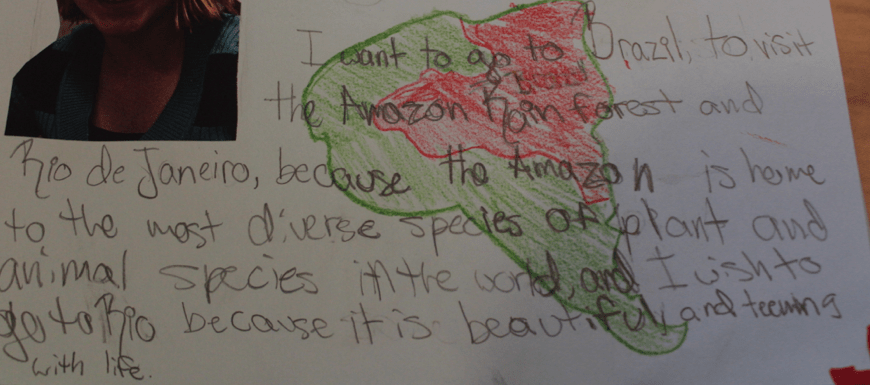 I want to go to Brazil, to visit
the Amazon Rain forest and
Rio de Janeiro, because the Amazon is home
to the most diverse species of plant and
animal species in the world, and I wish to
go to Rio because it is beautiful, and teeming
with life.